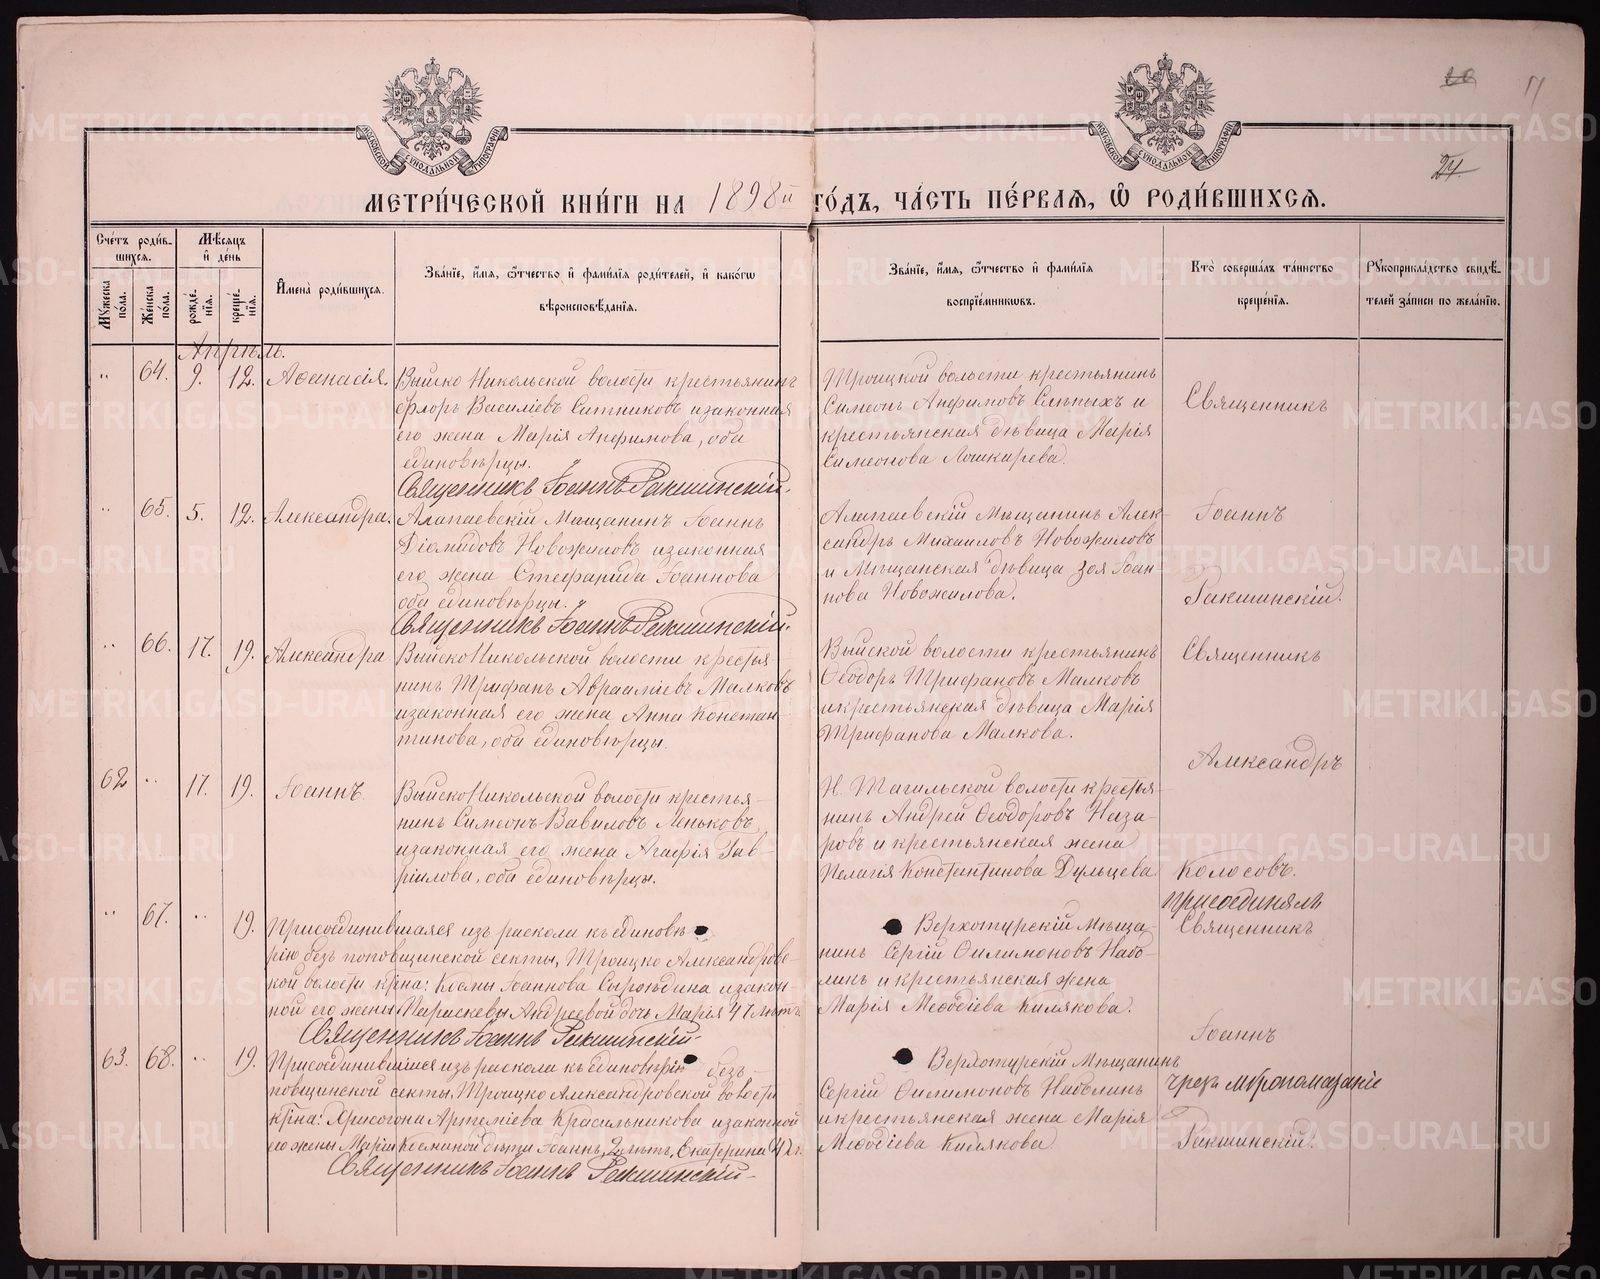 МОСКОВСКОЙ СѴНОДАЛЬНОЙ ТИПОГРАФІИ
МОСКОВСКОЙ СѴНОДАЛЬНОЙ ТИПОГРАФІИ
24
МЕТРИ́ЧЕСКОЙ КНИ́ГИ НА 1898й ГО́ДЪ, ЧА́СТЬ ПЕ́РВАЯ, Ѡ҆ РОДИ́ВШИХСЯ.
Сче́тъ роди́вшихся.
Мѣ́сяцъ и҆ де́нь
Мꙋ́жеска по́ла.
Же́нска по́ла.
рожде́нїя.
креще́нїя.
И҆мена̀ роди́вшихся.
Зва́нїе, и҆́мя, ѻ҆́тчество и҆ фами́лїя роди́телей, и҆ како́гѡ вѣроисповѣ́данїя.
Зва́нїе, и҆́мя, ѻ҆́тчество и҆ фами́лїя воспрїе́мникѡвъ.
Кто̀ соверша́лъ та́инство креще́нїя.
Рꙋкоприкла́дство свидѣ́телей за́писи по жела́нїю.
Апрѣль.
" 64. 9. 12. Аѳанасія. Выйско Никольской волости крестьянинъ
Флоръ Василіевъ Ситниковъ и законная
его жена Марія Анфимова, оба
единовѣрцы.
Священникъ Іоаннъ Ракшинскій.
Троицкой волости крестьянинъ
Симеонъ Анфимовъ Слѣпыхъ и
крестьянская дѣвица Марія
Симеонова Лошкарева.
Священникъ
" 65. 5. 12. Александра. Алапаевскій Мѣщанинъ Іоаннъ
Діомидовъ Новожиловъ и законная
его жена Стефанида Іоаннова
оба единовѣрцы.
Священникъ Іоаннъ Ракшинскій.
Алапаевскій Мѣщанинъ Алек-
сандръ Михаиловъ Новожиловъ
и Мѣщанская дѣвица Зоя Іоан-
нова Новожилова.
Іоаннъ
Ракшинскій.
" 66. 17. 19. Александра Выйско Никольской волости крестья-
нинъ Трифанъ Авраамiевъ Малковъ
и законная его жена Анна Констан-
тинова, оба единовѣрцы.
Выйской волости крестьянинъ
Ѳеодоръ Трифановъ Малковъ
и крестьянская дѣвица Марія
Трифанова Малкова.
Священникъ
Александръ
62 " 17. 19. Іоаннъ. Выйско Никольской волости крестья-
нинъ Симеонъ Вавиловъ Меньковъ
и законная его жена Агафія Гав-
ріилова, оба единовѣрцы.
Н. Тагильской волости крестья-
нинъ Андрей Ѳеодоровъ Наза-
ровъ и крестьянская жена
Пелагія Константинова Дульцева
Колосовъ.
" 67. " 19. Присоединившаяся изъ раскола къ единовѣ-
рію безъ поповщинской секты, Троицко Александровс-
кой волости кр̅на: Космы Іоаннова Сыроѣдина и закон-
ной его жены Параскевы Андреевой дочь Марія 47 лѣтъ
Священникъ Іоаннъ Ракшинскій.
Верхотурскій Мѣща-
нинъ Сергій Филимоновъ Набо-
линъ и крестьянская жена
Марія Меѳодіева Килякова.
присоединялъ
Священникъ
Іоаннъ
63. 68. " 19. Присоединившіеся изъ раскола къ единовѣрію безъ-
поповщинской секты, Троицко Александровской волости
кр̅на: Хрисогона Артеміева Красильникова и законной
его жены Маріи Косминой дѣти Іоаннъ, 2 лѣтъ, Екатерина
Священникъ Іоаннъ Ракшинскій
Верхотурскій Мѣщанинъ
Сергій Филимоновъ Наболинъ
и крестьянская жена Марія
Меѳодіева Килякова
чрезъ мѵропомазаніе
Ракшинскій.
METRIKI.GASO-URAL.RU